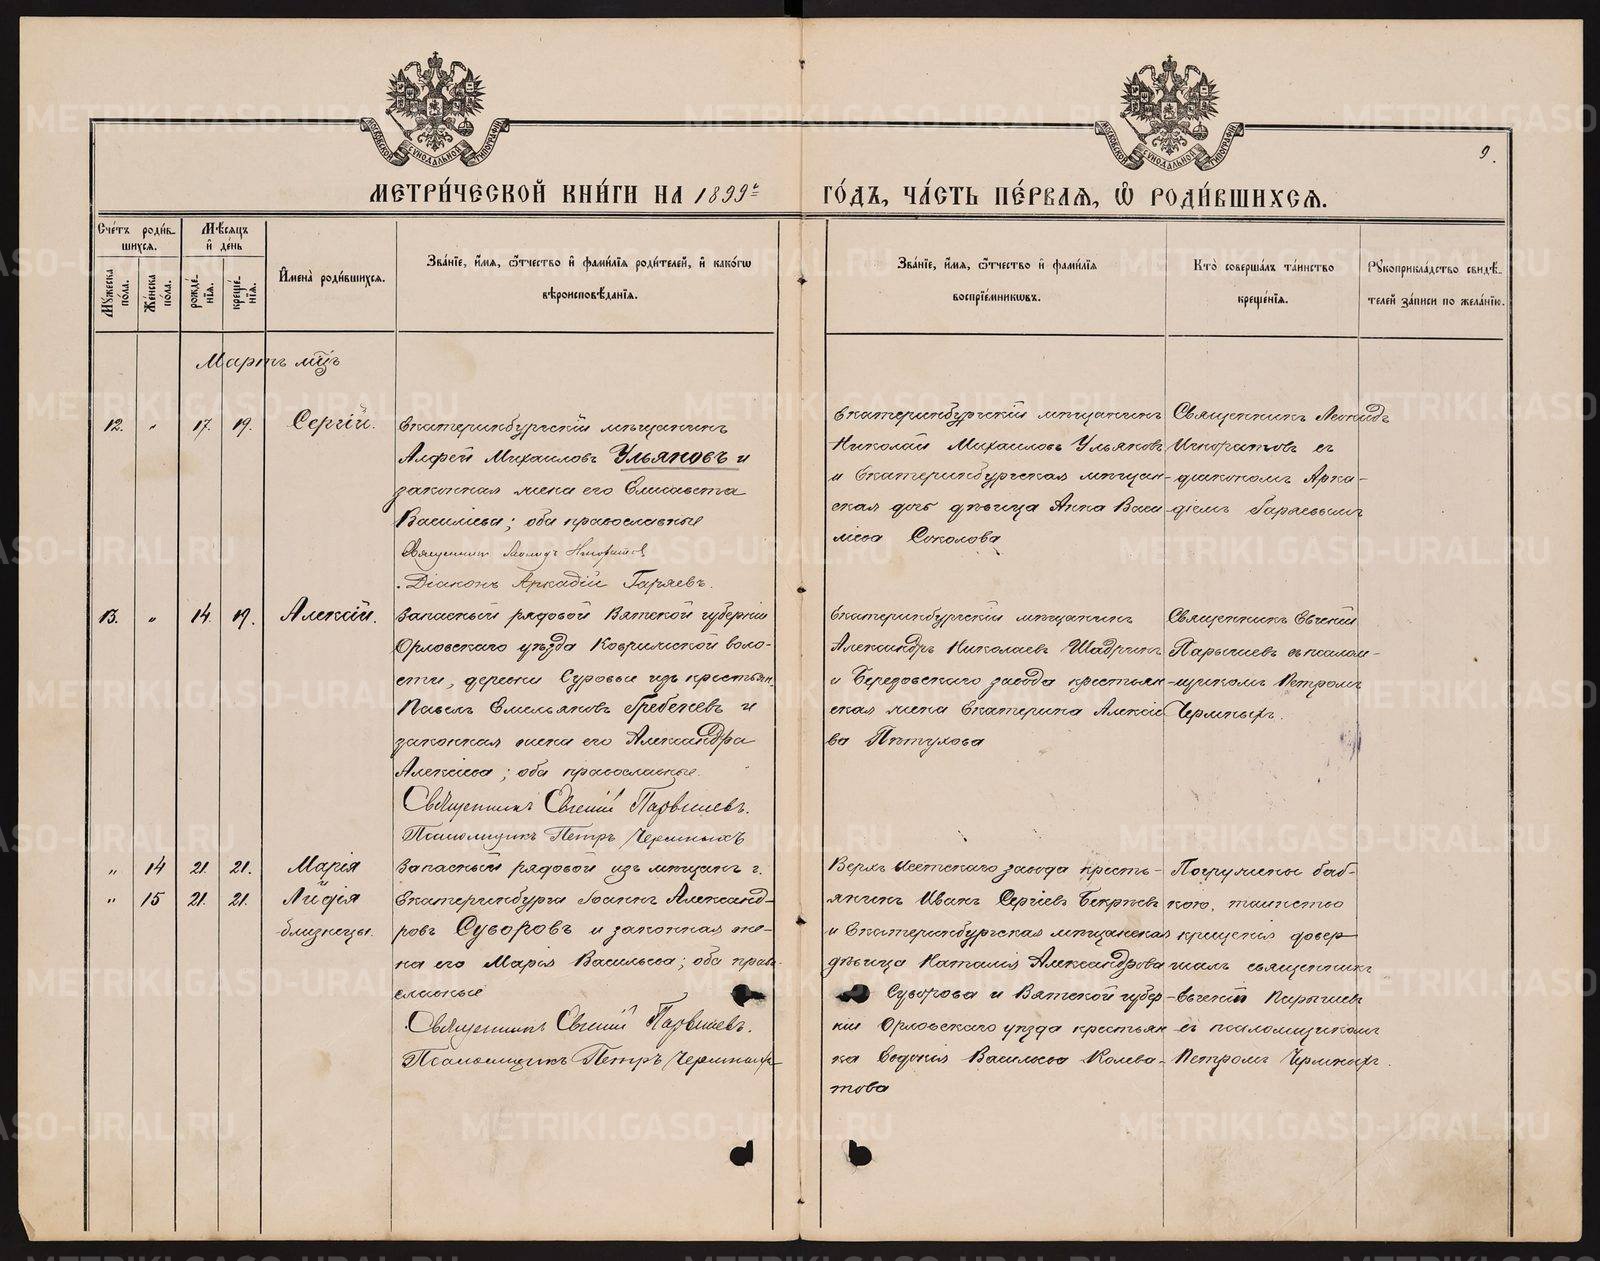 МЕТРИ́ЧЕСКОЙ КНИ́ГИ НА 1899й ГО́ДЪ, ЧА́СТЬ ПЕ́РВАЯ, Ѽ РОДИ́ВШИХСЯ.
9.
Сче́тъ роди́в-
шихся.
Мꙋ́жеска пола.
Же́нска пола.
Мѣ́сяцъ
и҆ де́нь
рожде́-
нїя.
креще́-
нїя.
И҆мена̀ роди́вшихся.
Зва́нїе, и҆́мя, ѻ҆́тчество и҆ фами́лїя роди́телей, и҆ како́гѡ
вѣроисповѣ́данїя.
Зва́нїе, и҆́мя, ѻ҆́тчество и҆ фами́лїя
воспрїе́мникѡвъ.
Кто̀ соверша́лъ та́инство
креще́нїя.
Рꙋкоприкла́дство свидѣ́-
телей за́писи по жела́нїю.
Мартъ мцъ
12. " 17. 19. Сергій.
Екатеринбургскій мѣщанинъ
Алфей Михаиловъ Ульяновъ и
законная жена его Елисавета
Васильева; оба православные
Священникъ Леонидъ
Діаконъ Аркадій Гаряевъ.
Екатеринбургскій мѣщанинъ
Николай Михаиловъ Ульяновъ
и Екатеринбургская мѣщан-
ская дочь дѣвица Анна Васи
льева Соколова
Священникъ Леонидъ
съ
діакономъ Арка-
діемъ Гаряевымъ
13. " 14. 19. Алексій.
Запасный рядовой Вятской губерніи
Орловскаго уѣзда воло-
сти, деревни Суровы изъ крестьян
Павелъ Емельяновъ Гребеневъ и
законная жена его Александра
Алексіева; оба православные.
Священникъ Евгеній Парышевъ.
Псаломщикъ Петръ Черныхъ
Екатеринбургскій мѣщанинъ
Александръ Николаевъ Шадринъ
и Березовскаго завода крестьян
ская жена Екатерина Алексіе
ва Пѣтухова
Священникъ Евгеній
Парышевъ съ псалом-
щикомъ Петромъ
" 14 21. 21. Марія
" 15 21. 21. Лидія
близнецы.
Запасный рядовой изъ мѣщанъ г.
Екатеринбурга Іоаннъ Александ-
ровъ Суворовъ и законная же-
на его Марія Васильева; оба право
славные
Священникъ Евгеній Парышевъ.
Псаломщикъ Петръ Черныхъ
Верхъ Исетскаго завода кресть-
янинъ Иванъ Сергіевъ
и Екатеринбургская мѣщанская
дѣвица Наталія Александрова
Суворова и Вятской губер-
ніи Орловскаго уѣзда крестьян
ка Евдокія Васильева Колева-
това
Погружены баб-
кою, таинство
крещенія довер
шалъ священникъ
Евгеній Парышевъ
съ псаломщикомъ
Петромъ
METRIKI.GASO-URAL.RU